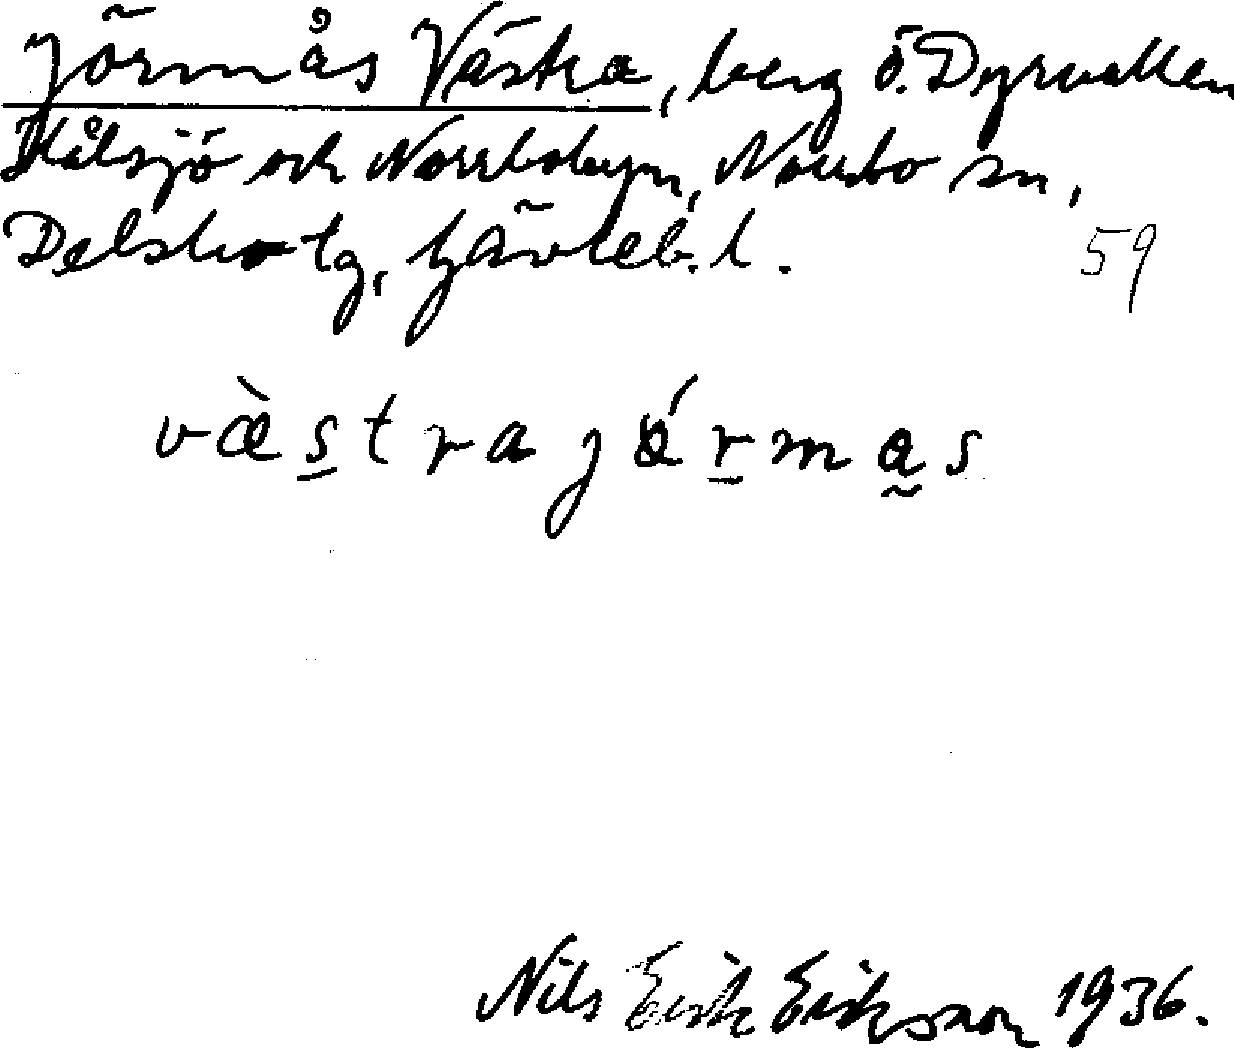 Jörmås Västra, berg ö. Dyrvallen
Hålsjö och Norrbobyn, Norrbo sn,
Delsbo tg, Gävleb. l.
59
västra jörmas
Nils Erik Eriksson 1936.